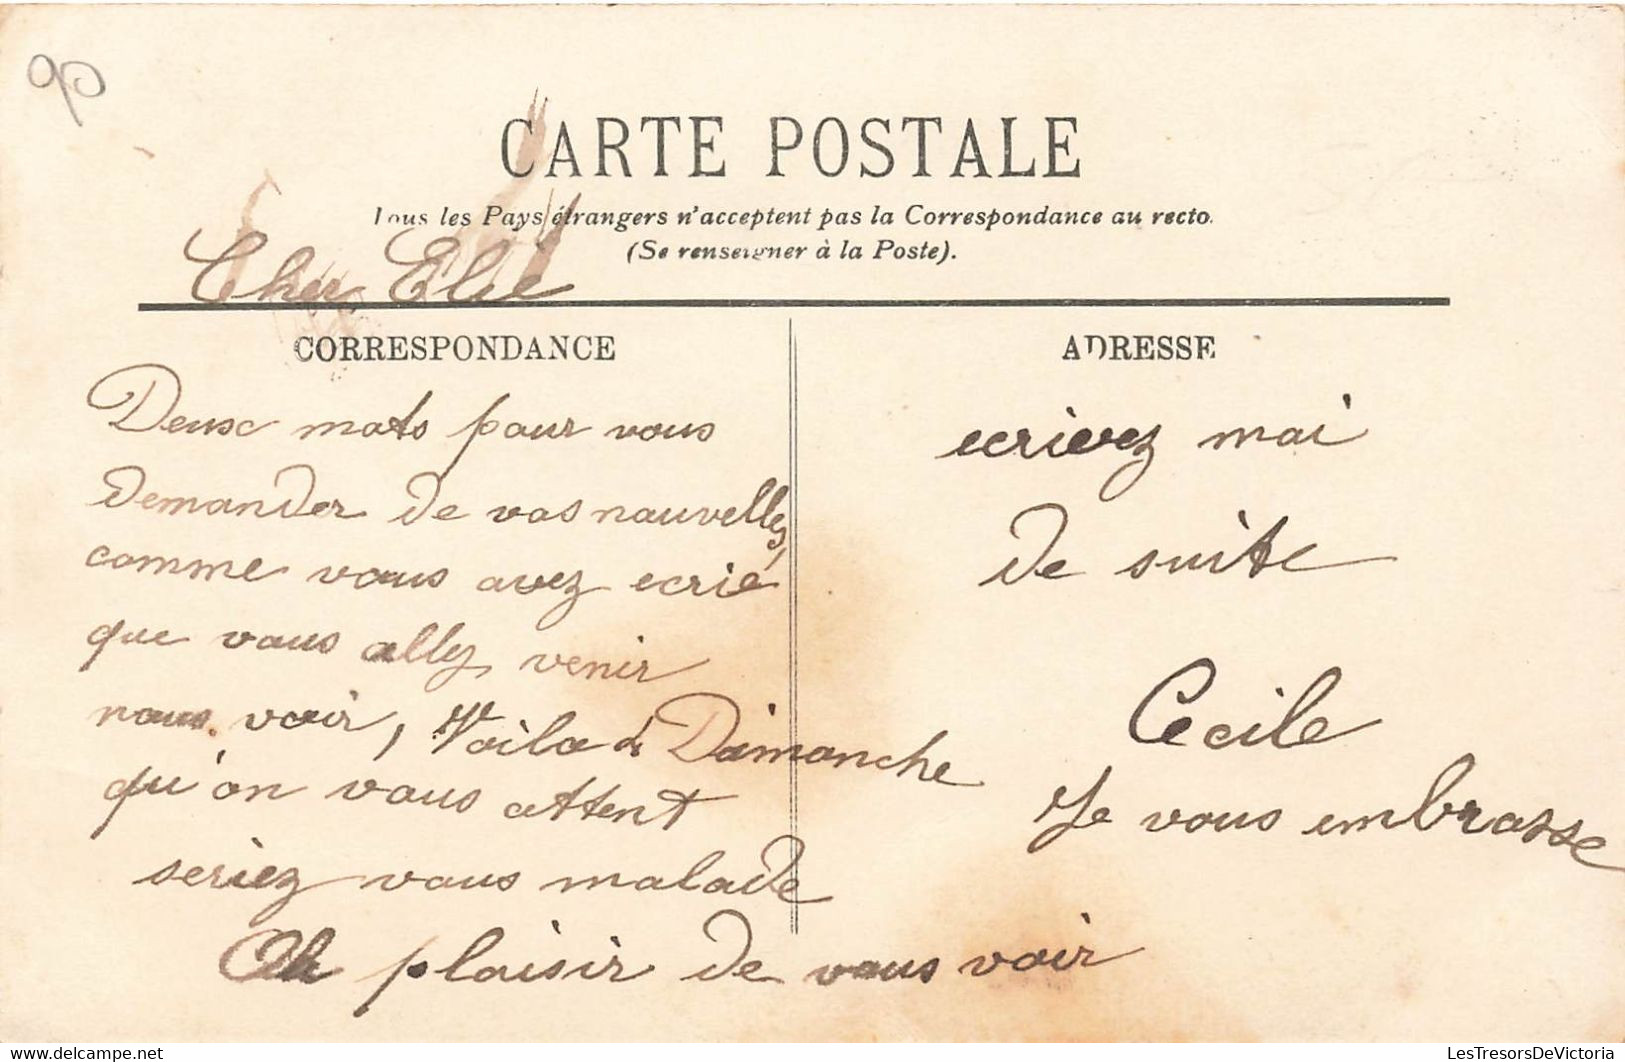 90
CARTE POSTALE
Tous les Pays étrangers n'acceptent pas la Correspondance au recto.
(Se renseigner à la Poste).
Cher Elie
CORRESPONDANCE
Deux mots pour vous
demander de vos nouvelles,
comme vous avez ecrié
que vous allez venir
nous voir, Voila 2 Dimanche
qu'on vous attent
seriez vous malade
Au plaisir de vous voir
ADRESSE
ecrivez moi
de suite
Cecile
Je vous embrasse
LesTresorsDeVictoria